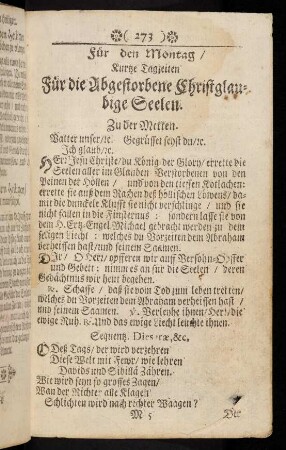 ( 273 )
Für den Montag /
Kurtze Tagzeiten
Für die Abgestorbene Christglau-
bige Seelen.
Zu der Metten.
Vatter unser / ꝛc. Gegrüsset seyst du / ꝛc.
Ich glaub / ꝛc.
HErr Jesu Christe / du König der Glory / errette die
Seelen aller im Glauben Verstorbenen von den
Peinen der Höllen / und von den tieffen Kotlachen:
errette sie auß dem Rachen deß höllischen Löwens / da-
mit die dunckele Klufft sie nicht verschlinge / und sie
nicht fallen in die Finsternus : sondern lasse sie von
dem H. Ertz-Engel Michael gebracht werden zu dem
seeligen Liecht : welches du Vorzeiten dem Abraham
verheissen hast / und seinem Saamen.
DIr / O HErr / opfferen wir auff Versöhn-Opffer
und Gebett ; nimm es an für die Seelen / deren
Gedächtnus wir heut begehen.
℟. Schaffe / daß sie von Tod zum leben tretten /
welches du Vorzeiten dem Abraham verheissen hast /
und seinem Saamen. ℣. Verleyhe ihnen / Herr / die
ewige Ruh. ℟. Und das ewige Liecht leuchte ihnen.
Sequentz. Dies iræ, &c.
O Deß Tags / der wird verzehren
Diese Welt mit Fewr / wie lehren
Davids und Sibillä Zähren.
Wie wird seyn so grosses Zagen /
Wan der Richter alle Klagen
Schlichten wird nach rechter Waagen ?
M 5 Die